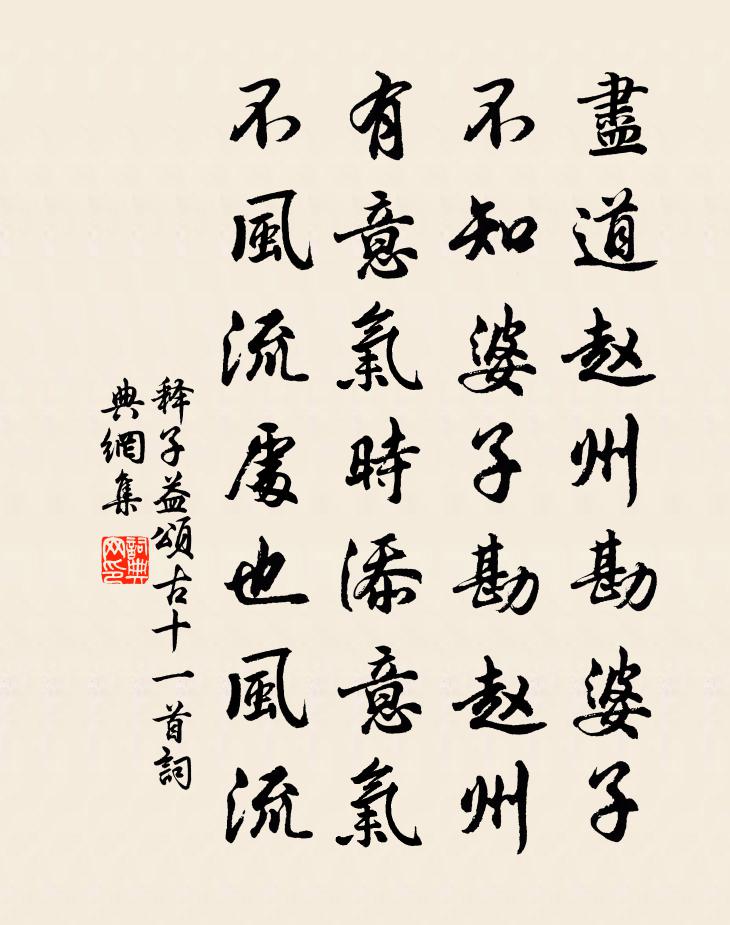 盡道赵州勘婆子
不知婆子勘赵州
有意氣時添意氣
不風流處也風流
释子益頌古十一首詞
典網集
詞典
网印